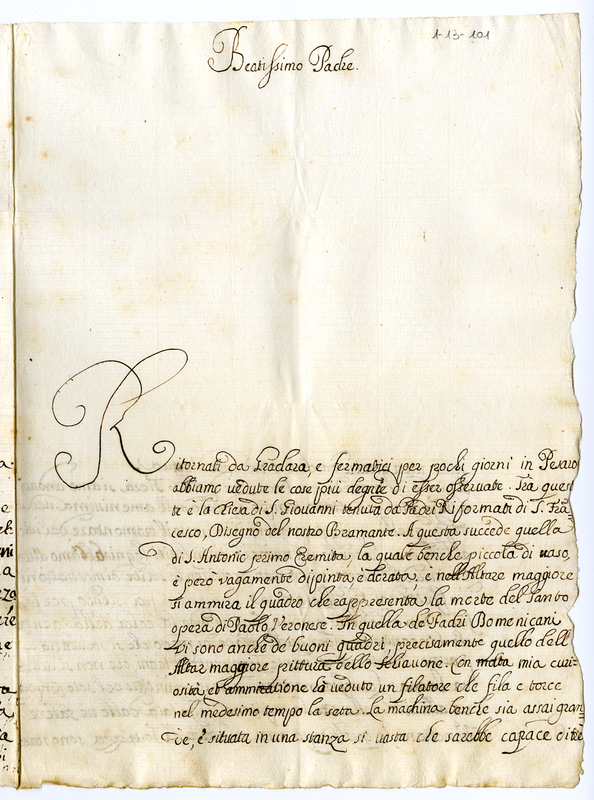 1-13-101
Beatissimo Padre.
Ritornati da Gradara, e fermatici per pochi giorni in Pesaro
abbiamo vedute le cose più degne di esser osservate. Fra ques
te è la chiesa di S. Giovanni tenuta da Padri Riformati di S. Fran
cesco, Disegno del nostro Bramante. A questa succede quella
di S. Antonio primo Eremita, la quale benche piccola di vaso,
è però vagamente dipinta e dorata, e nell'Altare maggiore
si ammira il quadro che rappresenta la morte del Santo
opera di Paolo Veronese. In quella de Padri Domenicani
vi sono anche de buoni quadri, precisamente quello dell'
Altar maggiore pittura dello Schiavone. Con molta mia curi-
osità et ammirazione hò veduto un filatore che fila e torce
nel medesimo tempo la seta. La machina benche sia assai gran
de, è situata in una stanza si vasta che sarebbe capace